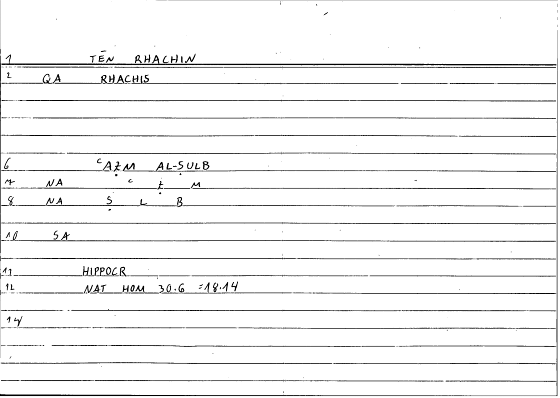 1 TĒN RHACHIN
2 QA RHACHIS
6 ʿAẒM AL-ṢULB
7 NA ʿ Ẓ M
8 NA Ṣ L B
10 SA
11 HIPPOCR
12 NAT HOM 30.6 =18.14
14